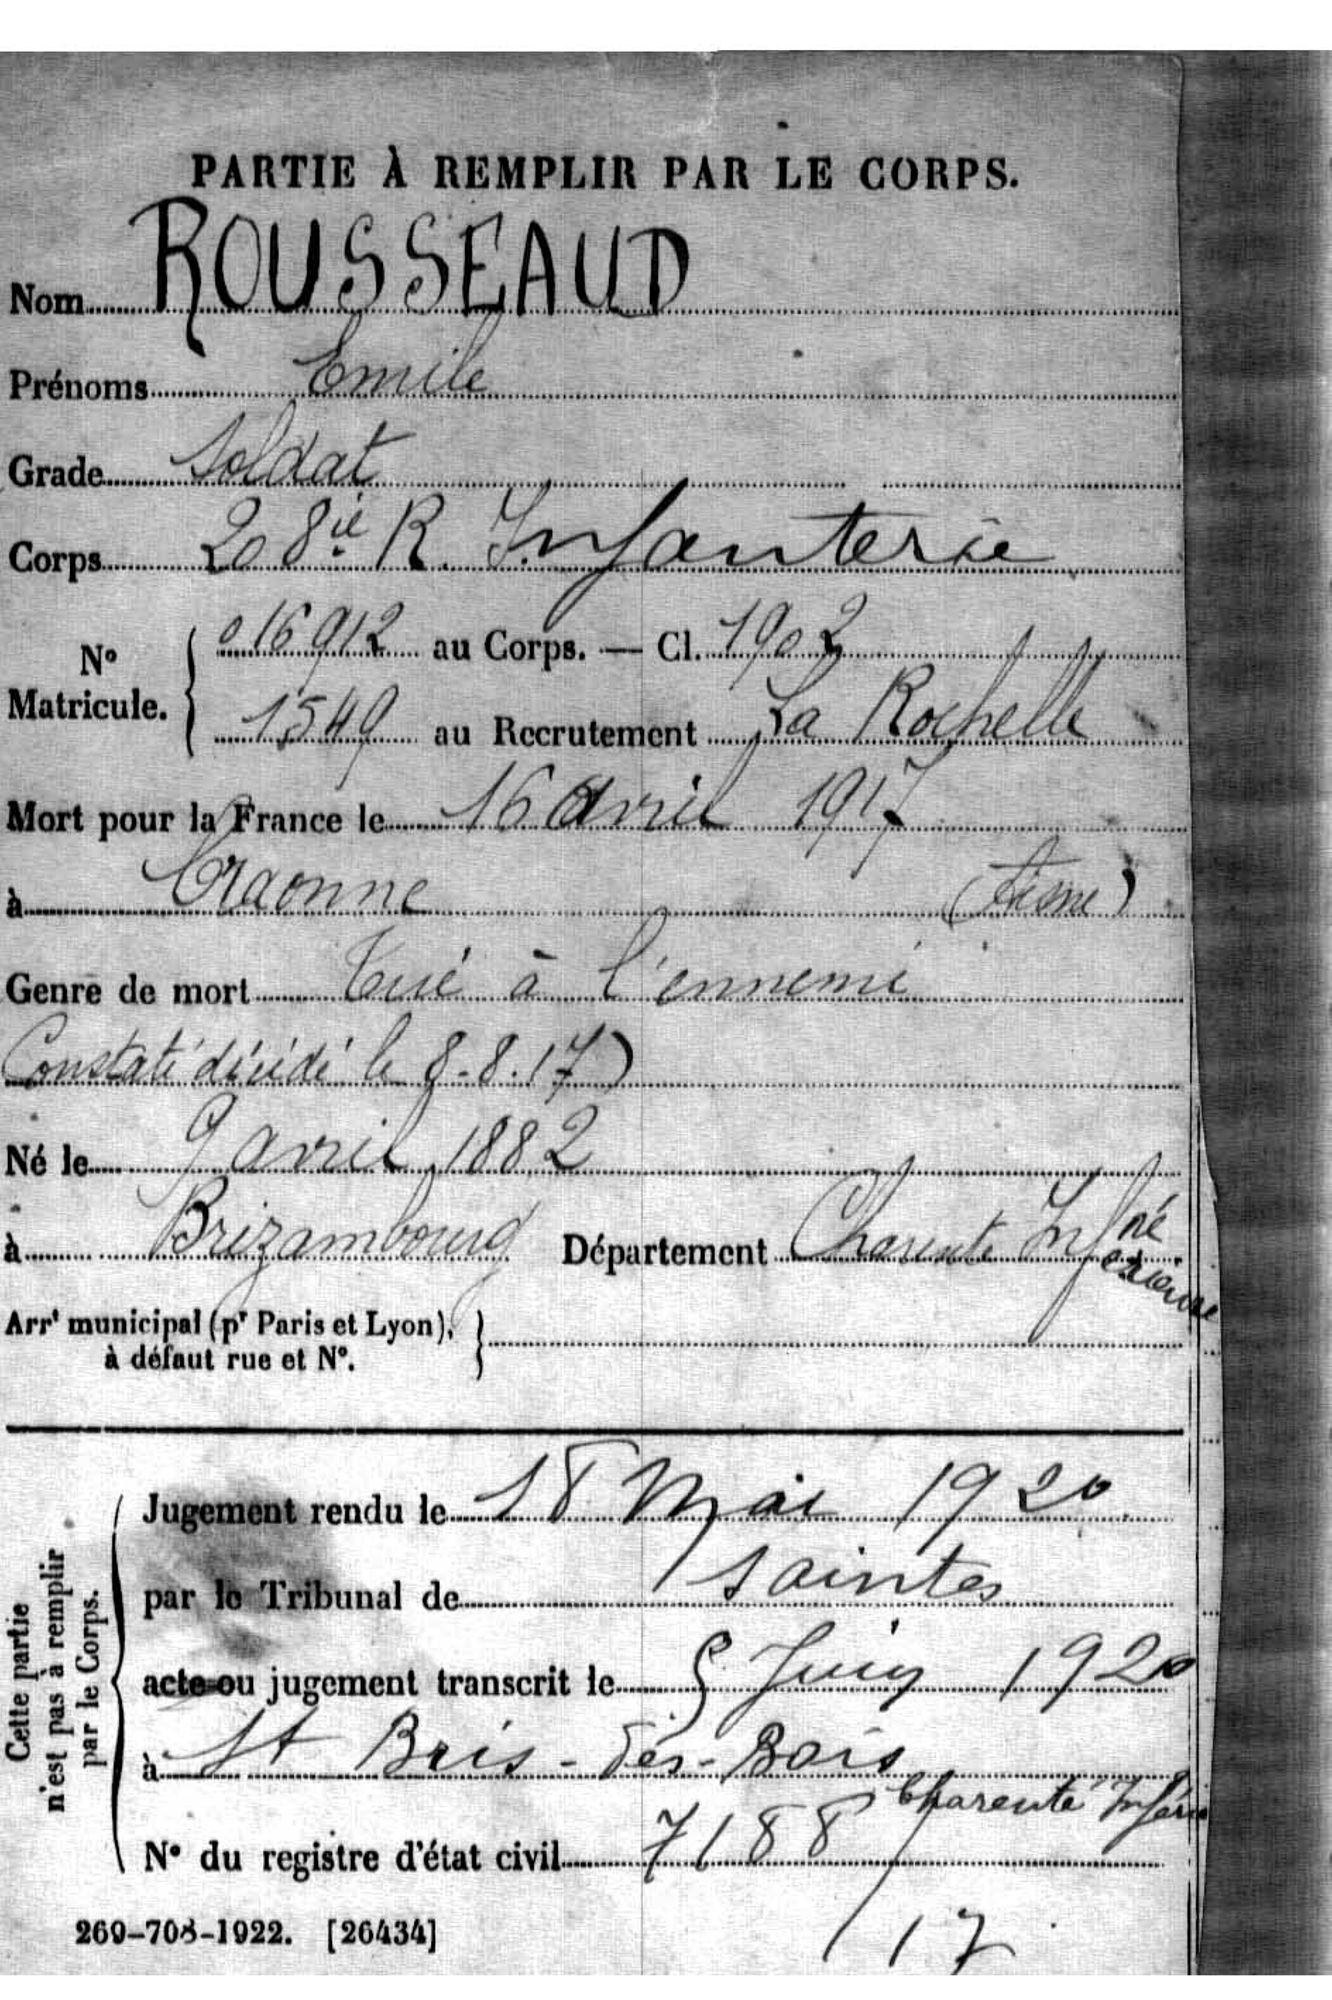 PARTIE À REMPLIR PAR LE CORPS.
Nom ROUSSEAUD
Prénoms Emile
Grade Soldat
Corps 208ie R. Infanterie
N° Matricule. 016912 au Corps. — Cl. 1902
1549 au Recrutement La Rochelle
Mort pour la France le 16 avril 1917
à Craonne (Aisne)
Genre de mort Tué à l'ennemi
Constaté décédé le 8-8.17)
Né le 9 avril 1882
à Brizambourg Département Charente Inférieure
Arrt municipal (pr Paris et Lyon),
à défaut rue et N°.
Cette partie
n'est pas à remplir
par le Corps.
Jugement rendu le 18 Mai 1920
par le Tribunal de Saintes
acte ou jugement transcrit le 5 Juin 1920
à St Bris-des-Bois
Charente
N° du registre d'état civil 7188/17
269-708-1922. [26434]